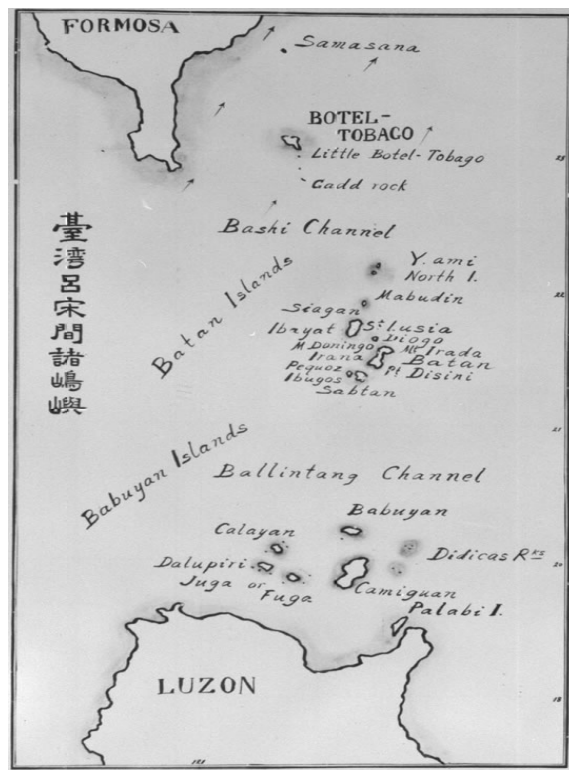 FORMOSA
Samasana
BOTEL-
TOBACO
Little Botel-Tobago
Gadd rock
Bashi Channel
臺湾呂宋間諸嶋嶼
Batan Islands
Y.ami
North I.
Mabudin
Siagan
Ibayat
St Lusia
Diogo
M.Doningo
Mt Irada
Irana
Batan
Pequoz
Pt Disini
Ibugos
Sabtan
Babuyan Islands
Ballintang Channel
Babuyan
Calayan
Didicas Rks
Dalupiri
Juga or
Fuga
Camiguan
Palabi I.
LUZON
21
20
18